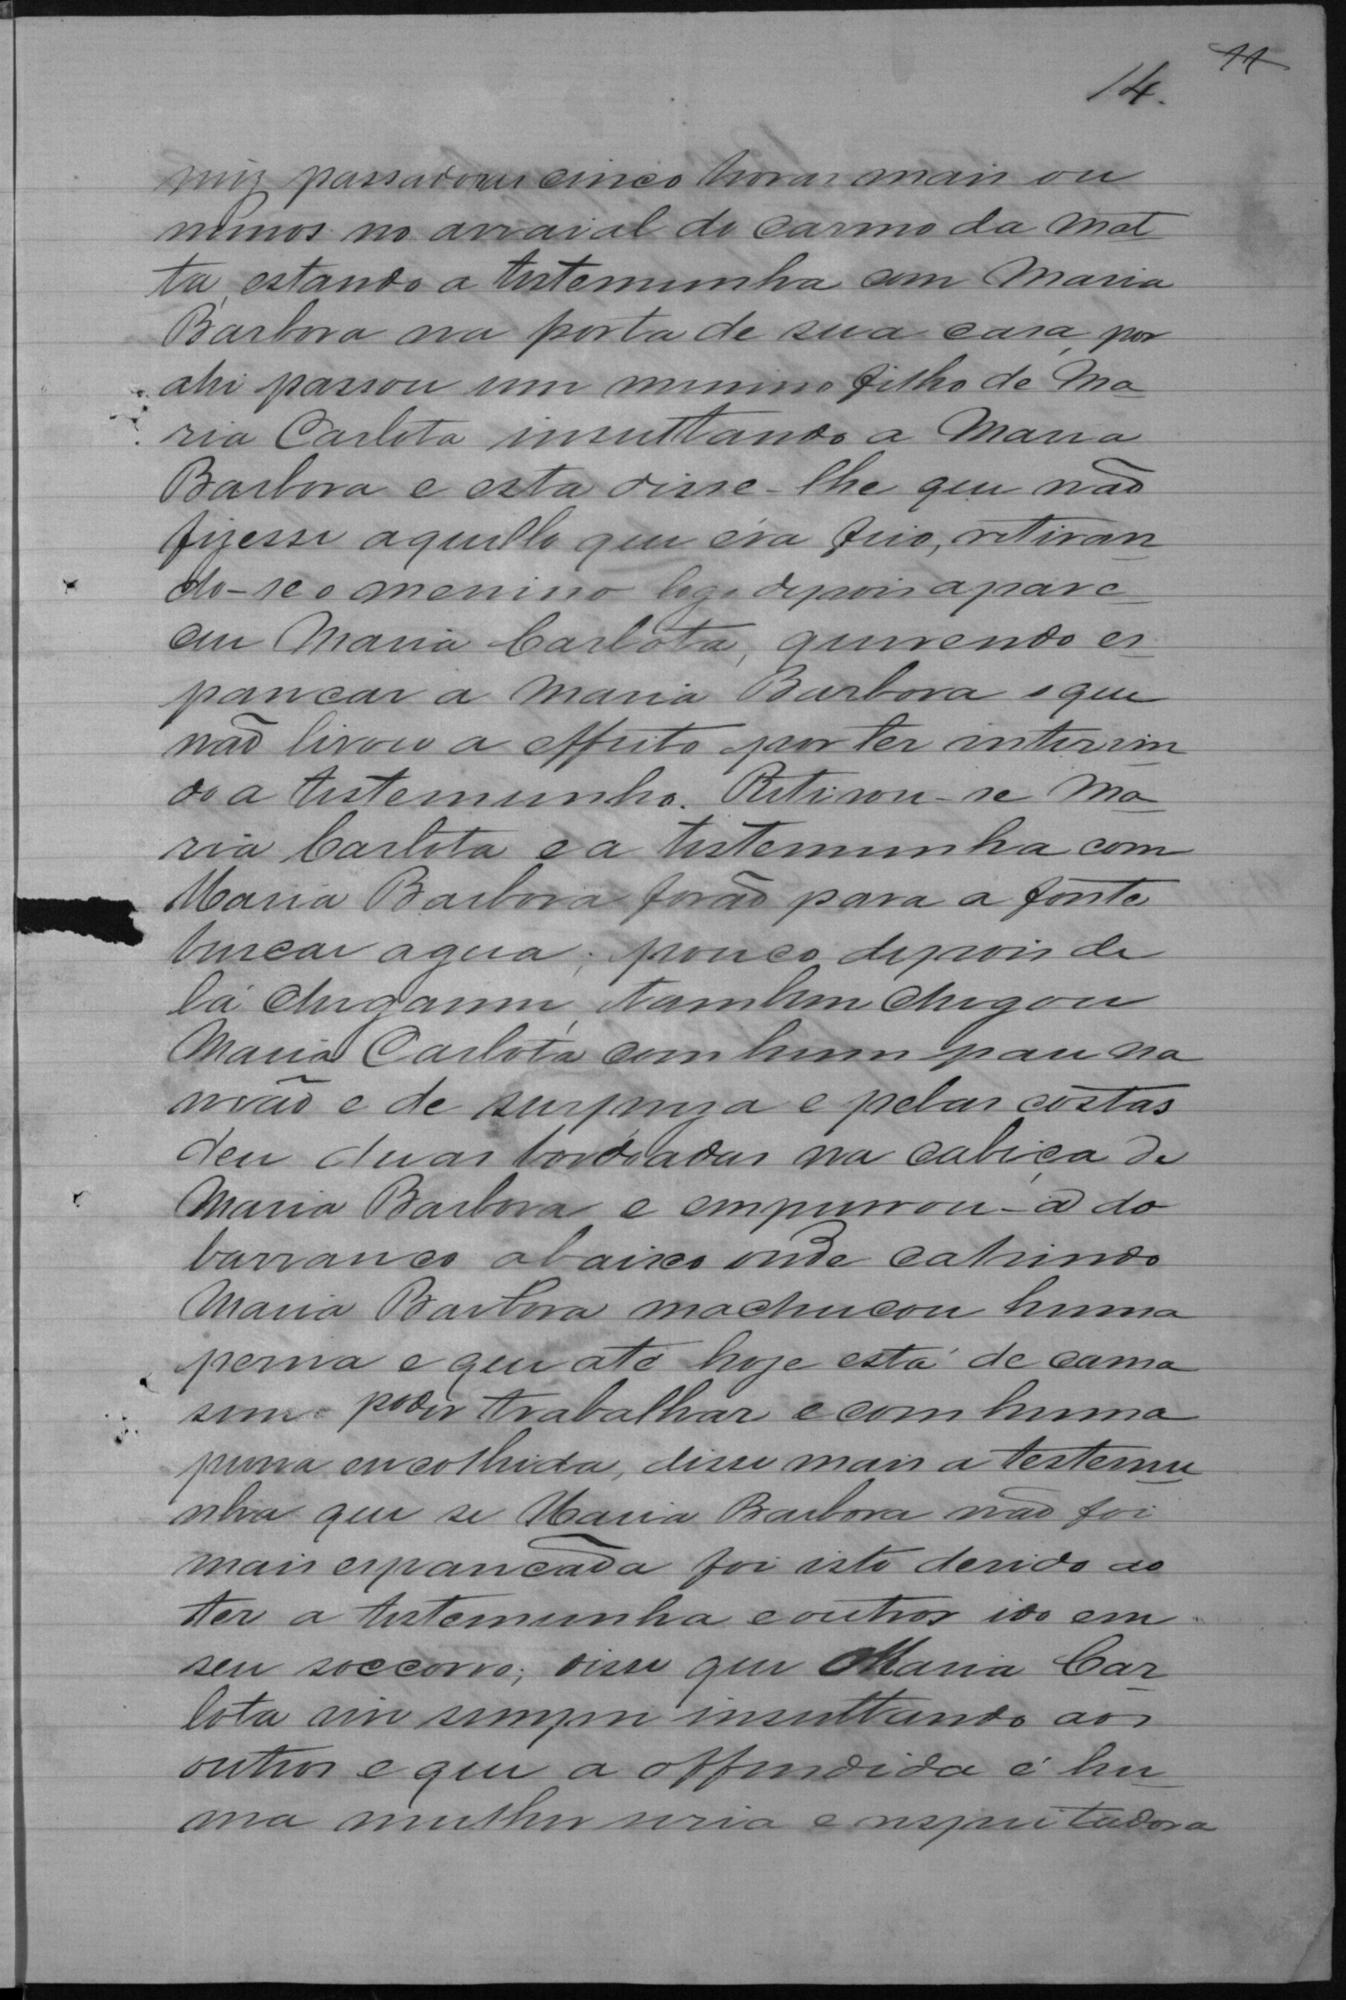 14. 11
mez passado as cinco horas mais ou
menos no arraial do Carmo da Mat
ta, estando a testemunha com Maria
Barbora na porta de sua casa, por
ahi passou um menino filho de Ma
ria Carlota insultando a Maria
Barbora e esta disse-lhe que não
fizesse aquillo que éra feio, retiran
do-se o menino logo depois apare
ceu Maria Carlota, querendo es
pancar a Maria Barbora o que
não levou a effeito por ter intervin
do a testemunha. Retirou-se Ma
ria Carlota e a testemunha com
Maria Barbora forão para a fonte
buscar agua; pouco depois de
lá chegarem, tambem chegou
Maria Carlota com hum pau na
mão e de surpreza e pelas costas
deu duas bordoadas na cabeça de
Maria Barbora e empurrou-a do
barranco abaixo onde cahindo
Maria Barbora machucou huma
perna e que até hoje está de cama
sem poder trabalhar e com huma
perna encolhida, disse mais a testemu
nha que se Maria Barbora não foi
mais espancada foi isto devido ao
ter a testemunha e outros ido em
seu soccorro; disse que Maria Car
lota vive sempre insultando aos
outros e que a offendida é hu
ma mulher seria e respeitadora